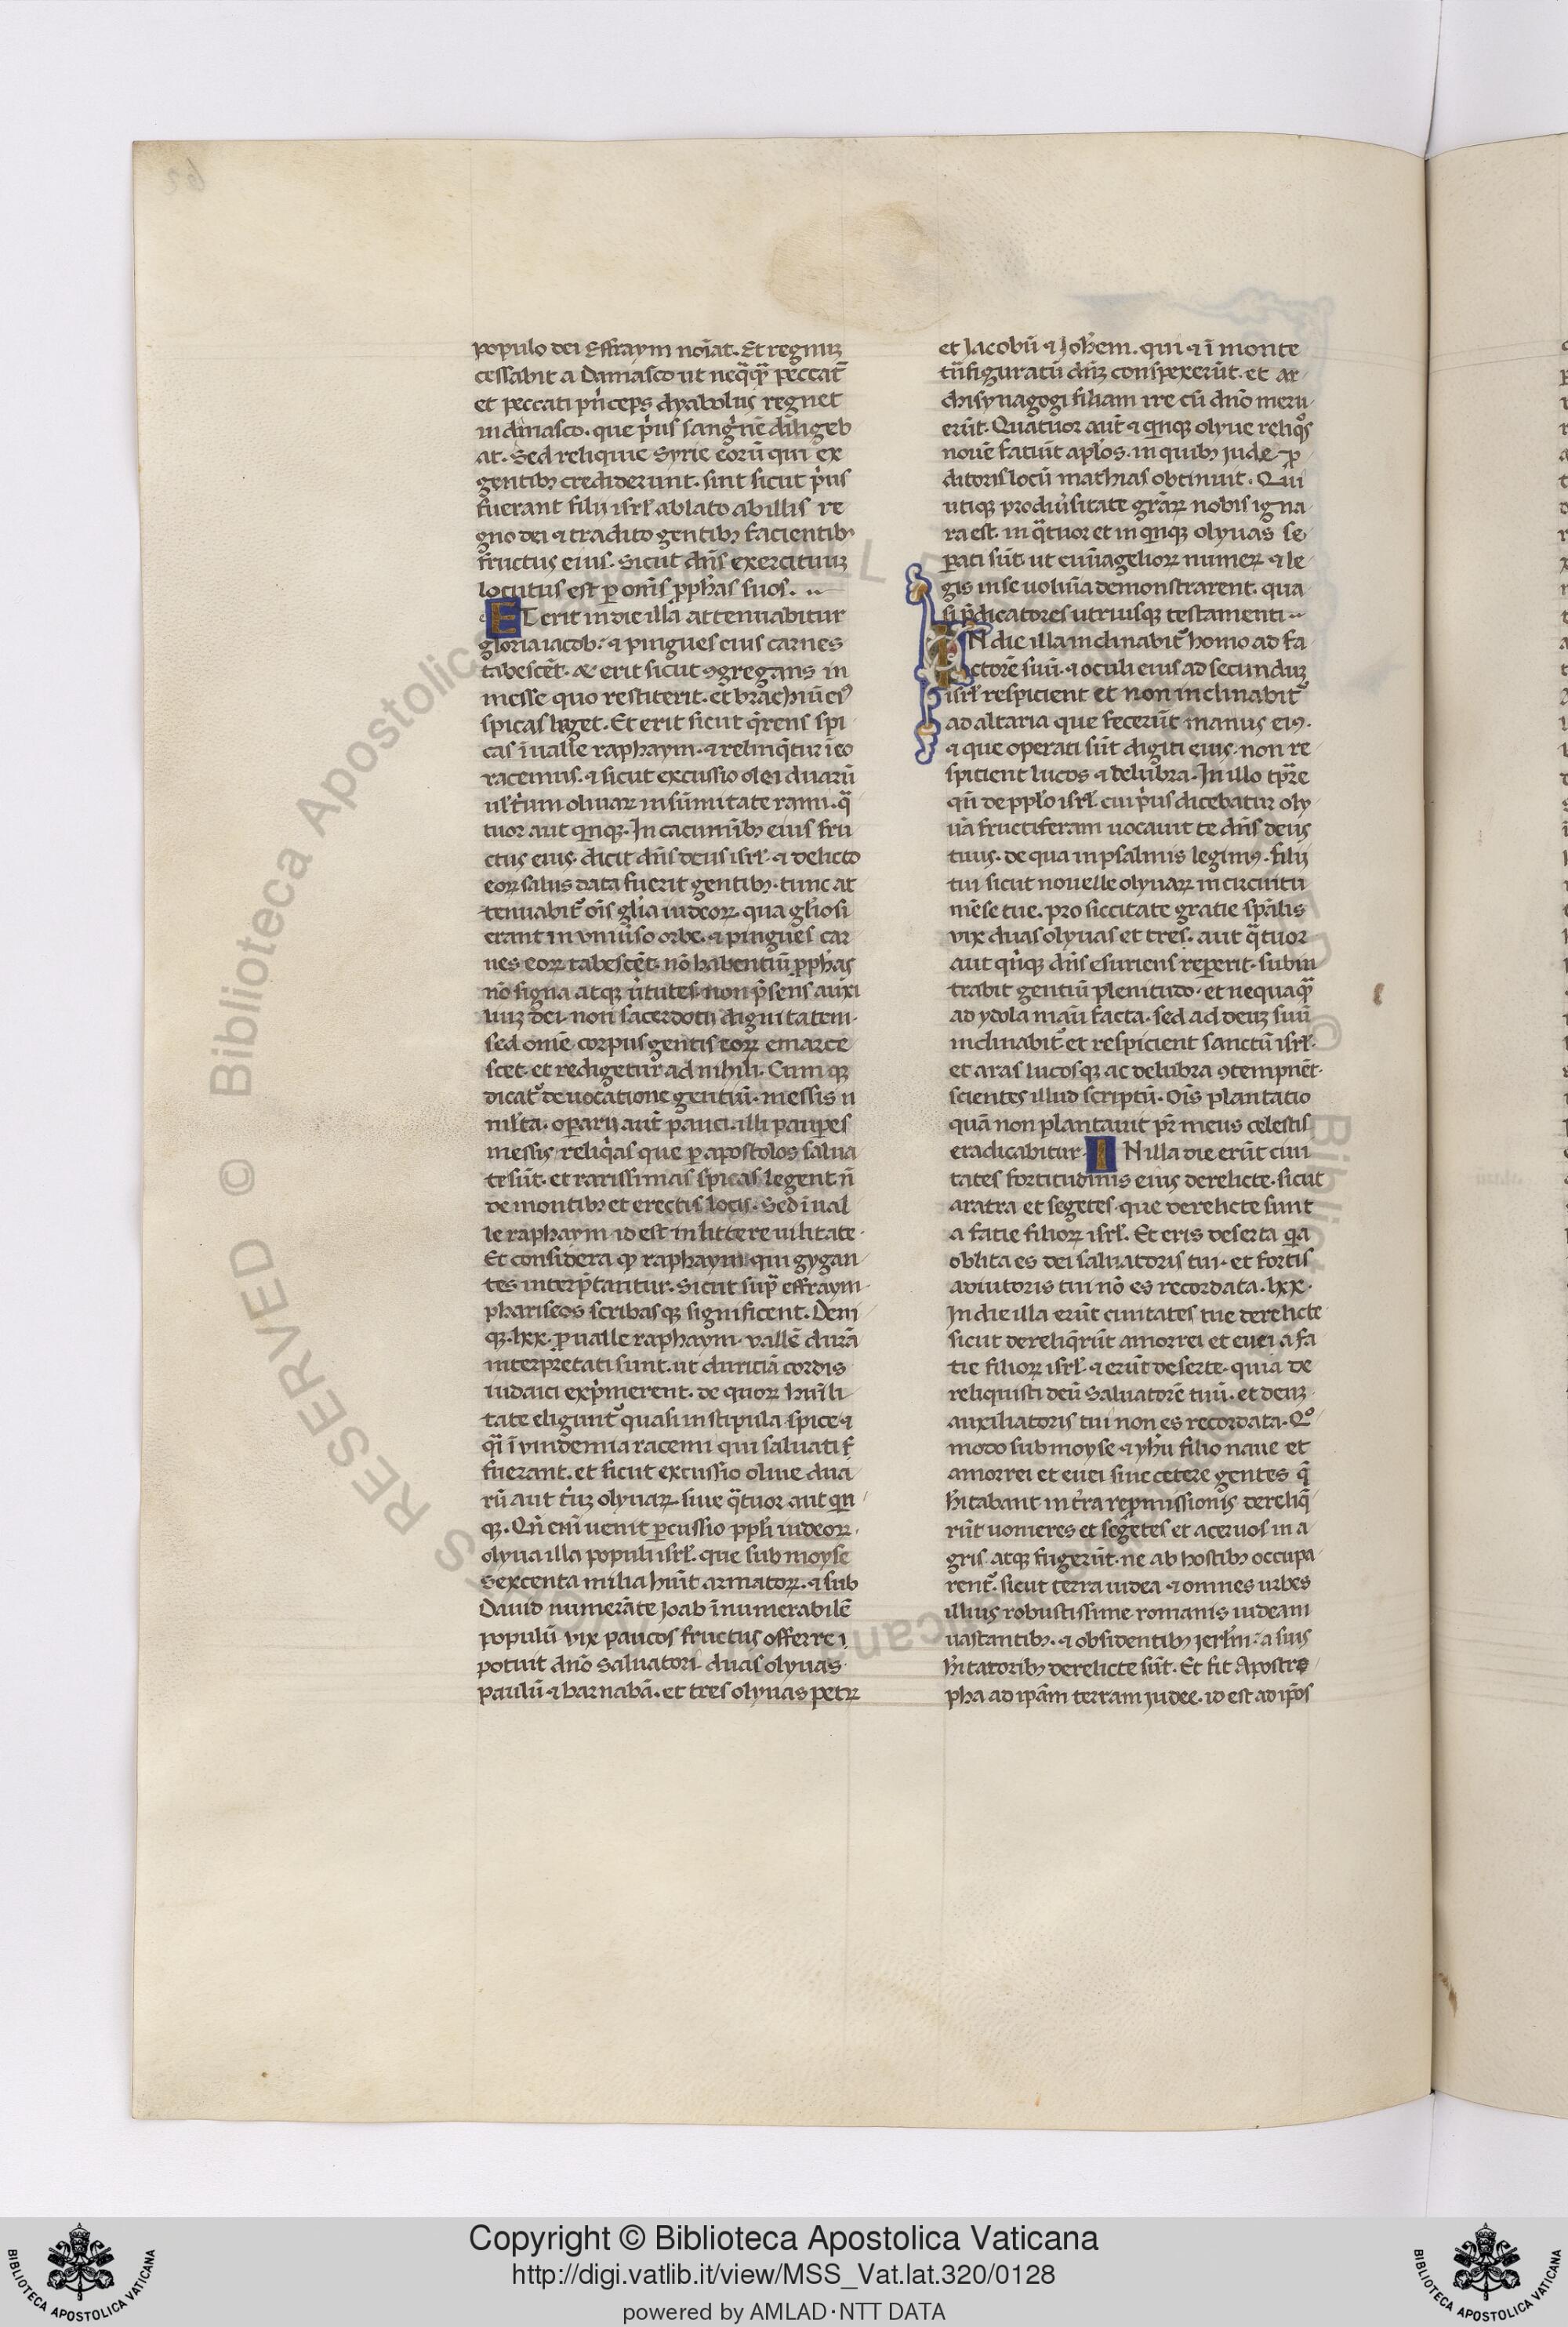 populo dei Effraym noīat. Et regnuꝫ
cessabit a Damasco ut neq̄q̄ peccat̄
et peccati pⁱnceps dyabolus regnet
in dāmasco. que pⁱus sangⁱnē diligeb
at. Sed reliquie Syrie eorū qui ex
gentibꝫ crediderunt. sint sicut pⁱus
fuerant filii isrl̓ ablato ab illis re
gno dei ⁊ tradito gentibꝫ facientibꝫ
fructus eius. Sicut dn̄s exercituuꝫ
locutus est ꝑ om̄s ꝓph̄as suos.
ET erit in die illa attenuabitur
gloria iacob. ⁊ pingues eius carnes
tabescēt. & erit sicut ꝯgregans in
messe quo restiterit. et brachiū eiꝰ
spicas leget. Et erit sicut qⁱrens spi
cas ī ualle raphaym. ⁊ relinqⁱtur ī eo
racemus. ⁊ sicut excussio olei duarū
ul̓ tⁱum oliuaꝝ in sūmitate rami. qᵃ
tuor aut qⁱnqꝫ. In cacuminībꝫ eius fru
ctus eius. dicit dn̄s deus isrl̓. ⁊ delicto
eoꝝ salus data fuerit gentibꝫ. tunc at
tenuabit̓ oīs gl̓ia iudeoꝝ. qua gl̓iosi
erant in vniūso orbe. ⁊ pingues car
nes eoꝝ tabescēt. nō habentiū ꝓph̄as
nō signa atqꝫ uⁱtutes. non p̄sens auxi
liuꝫ dei. non sacerdotii dignitatem.
sed om̄e corpus gentis eoꝝ emarce
scet. et redigetur ad nihili. Cum qꝫ
dicat̓ de uocatione gentiū. messis n̄
ml̓ta. oꝑarii aut̄ pauci. illi pauꝑes
messis reliqⁱas que ꝑ apostolos salua
te sūt. et rarissimas spicas legent n̄
de montibꝫ et erectis locis. Sed ī ual
le raphaym id est in littere uilitate.
Et considera ꝙ raphaym qui gygan
tes interp̄tantur. Sicut supᵃ effraym
phariseos scribasqꝫ significent. Deni
qꝫ. lxx. ꝓ ualle raphaym. vallē durā
interpretati sunt. ut duriciā cordis
iudaici expⁱmerent. de quoꝝ humili
tate eligunt̓ quasi in stipula spice ⁊
qᵃi ī vindemia racemi qui saluati
fuerant. et sicut excussio oliue dua
rū aut tⁱuꝫ olyuaꝝ. siue qᵃtuor aut qⁱn
qꝫ. Qn̄ eni uenit ꝑcussio ppl̓i iudeoꝝ.
olyua illa populi isrl̓. que sub moyse
sexcenta milia hūit armatoꝝ. ⁊ sub
Dauid numerāte Joab īnumerabilē
populū vix paucos fructus offerre
potuit dn̄o saluatori. duas olyuas
paulū ⁊ barnabā. et tres olyuas petꝝ
et Jacobū ⁊ Joh̄em. qui ⁊ ī monte
tn̄sfiguratū dn̄ꝫ conspexerūt. et ar
chisynagogi filiam ire cū dn̄o meru
erūt. Quatuor aut̄ ⁊ qⁱnqꝫ olyue reliqᵒs
nouē faciūt apl̓os. in quibꝫ jude ꝓ
ditoris locū mathias obtinuit. Qui
utiqꝫ ꝓ diūsitate gr̄aꝝ nobis igna
ra est. in qᵃtuor et in qⁱnqꝫ olyuas se
ꝑati sūt. ut euuāgelioꝝ numeꝝ ⁊ le
gis in se uoluīa demonstrarent. qua
si p̄dicatores utriusqꝫ testamenti.
IN die illa inclinabit̓ homo ad fa
ctorē suū. ⁊ oculi eius ad secunduꝫ
isrl̓ respicient et non inclinabit̓
ad altaria que fecerūt manus eiꝰ.
⁊ que operati sūt digiti eius. non re
spicient lucos ⁊ delubra. In illo tp̄re
qn̄ de ppl̓o isrl̓. cui pⁱus dicebatur oly
uā fructiferam uocauit te dn̄s deus
tuus. de qua in psalmis legimꝰ. filii
tui sicut nouelle olyuaꝝ in circuitu
mēse tue. pro siccitate gratie sp̄alis
vix duas olyuas et tres. aut qᵃtuor
aut qⁱnqꝫ dn̄s esuriens reꝑerit. subin
trabit gentiū plenitudo. et nequaqᵃ
ad ydola manū facta. sed ad deuꝫ suū
inclinabit̓ et respicient sanctū isrl̓.
et aras lucosqꝫ ac delubra ꝯtempnēt.
scientes illud scriptū. Oīs plantatio
quā non plantauit pr̄ meus celestis
eradicabitur. IN illa die erūt ciui
tates fortitudinis eius derelicte. sicut
aratra et segetes. que derelicte sunt
a facie filioꝝ isrl̓. Et eris deserta qⁱa
oblita es dei saluatoris tui. et fortis
adiutoris tui nō es recordata. lxx.
In die illa erūt ciuitates tue derelicte
sicut dereliqⁱrūt amorrei et euei a fa
cie filioꝝ isrl̓. ⁊ erūt deserte. quia de
reliquisti deū saluatorē tuū. et deuꝫ
auxiliatoris tui non es recordata. Qᵒ
modo sub moyse ⁊ yh̄u filio naue et
amorrei et euei siue cetere gentes q̄
h̄itabant in tⁱra reꝓmissionis dereliq̄
rūt uomeres et segetes et aceruos in a
gris. atqꝫ fugerūt. ne ab hostibꝫ occupa
rent̓. sicut terra iudea ⁊ omnes urbes
illius robustissime romanis iudeam
uastantibꝫ. ⁊ obsidentibꝫ ierl̓m. a suis
h̄itatoribꝫ derelicte sūt. Et fit Apostro
pha ad ip̄am terram judee. id est ad ip̄os
Copyright © Biblioteca Apostolica Vaticana
http://digi.vatlib.it/view/MSS_Vat.lat.320/0128
powered by AMLAD·NTT DATA